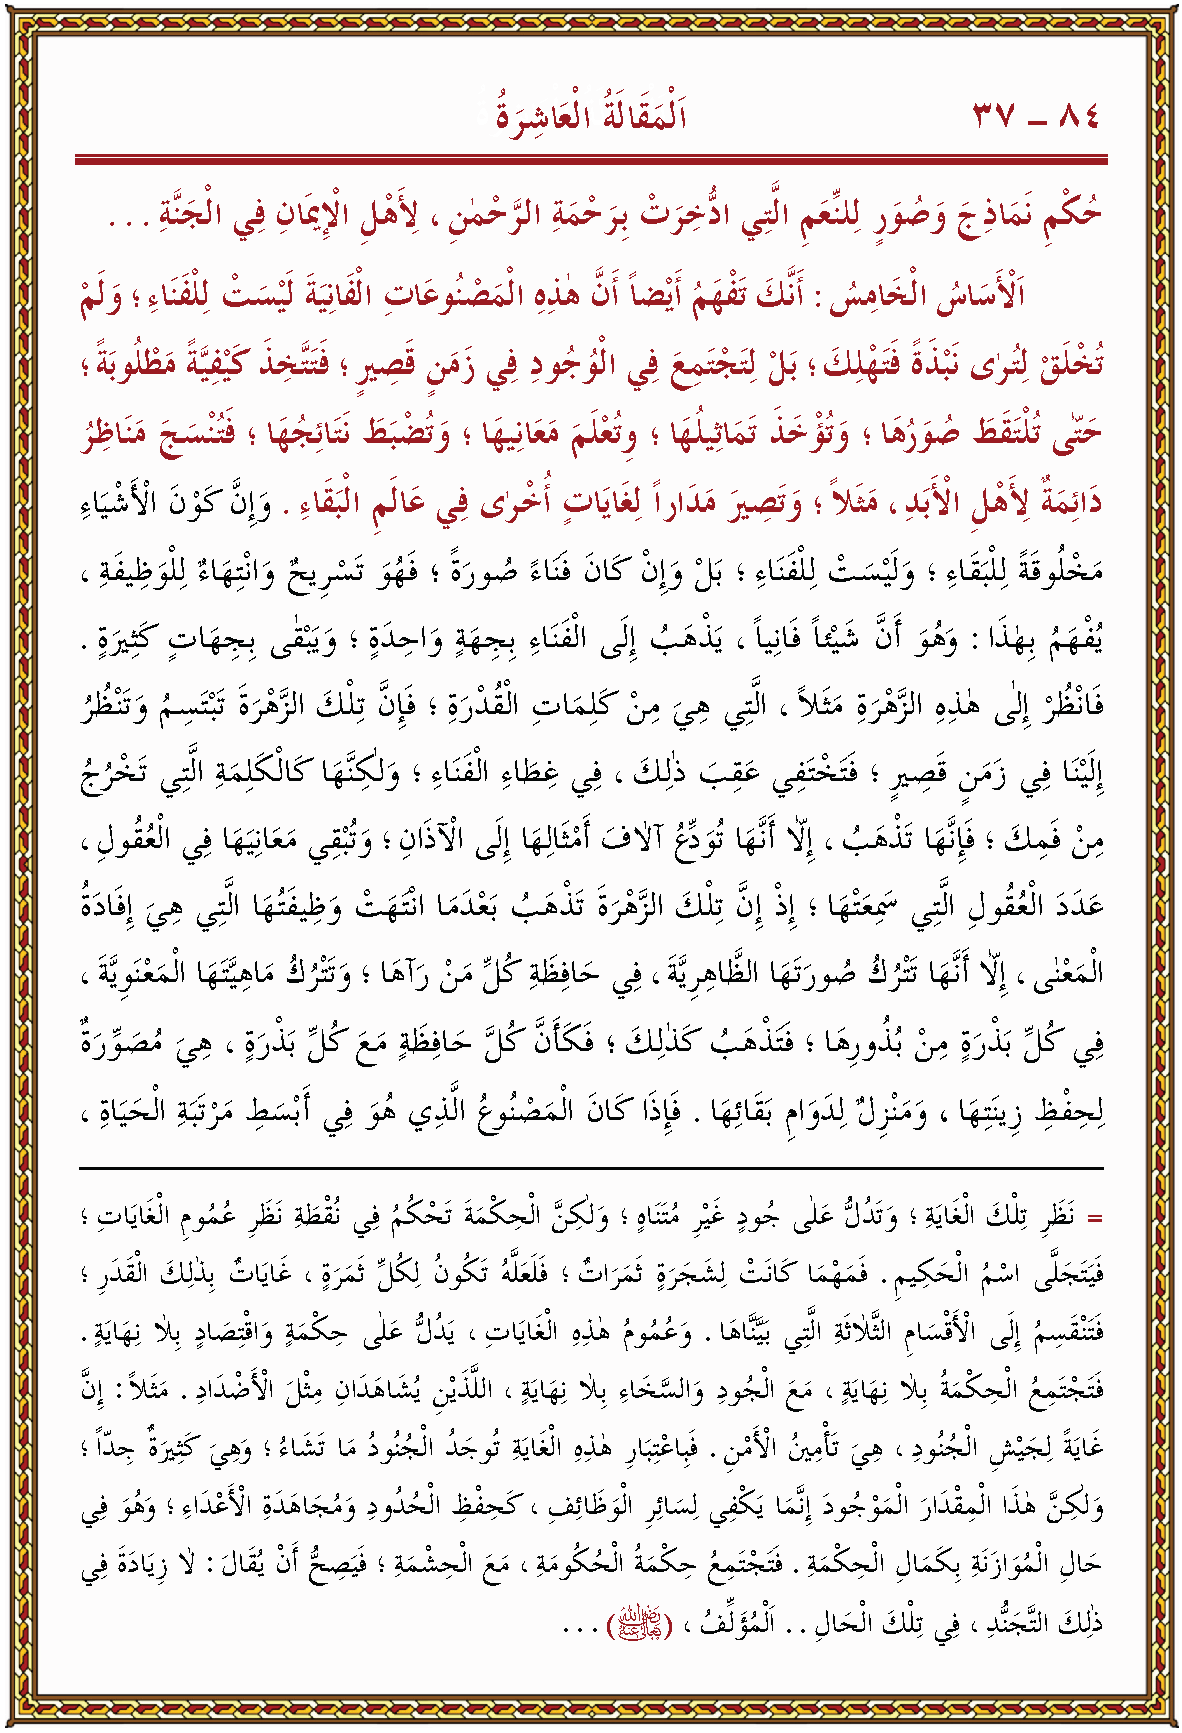 ٨٤ – ٣٧ اَلْمَقَالَةُ الْعَاشِرَةُ
حُكْمِ نَمَاذِجَ وَصُوَرٍ لِلنِّعَمِ الَّتِي ادُّخِرَتْ بِرَحْمَةِ الرَّحْمٰنِ ، لِأَهْلِ الْإِيمَانِ فِي الْجَنَّةِ . . .
اَلْأَسَاسُ الْخَامِسُ : أَنَّكَ تَفْهَمُ أَيْضاً أَنَّ هٰذِهِ الْمَصْنُوعَاتِ الْفَانِيَةَ لَيْسَتْ لِلْفَنَاءِ ؛ وَلَمْ
تُخْلَقْ لِتُرٰى نَبْذَةً فَتَهْلِكَ ؛ بَلْ لِتَجْتَمِعَ فِي الْوُجُودِ فِي زَمَنٍ قَصِيرٍ ؛ فَتَتَّخِذَ كَيْفِيَّةً مَطْلُوبَةً ؛
حَتّٰى تُلْتَقَطَ صُوَرُهَا ؛ وَتُؤْخَذَ تَمَاثِيلُهَا ؛ وِتُعْلَمَ مَعَانِيهَا ؛ وَتُضْبَطَ نَتَائِجُهَا ؛ فَتُنْسَجَ مَنَاظِرُ
دَائِمَةٌ لِأَهْلِ الْأَبَدِ ، مَثَلاً ؛ وَتَصِيرَ مَدَاراً لِغَايَاتٍ أُخْرٰى فِي عَالَمِ الْبَقَاءِ . وَإِنَّ كَوْنَ الْأَشْيَاءِ
مَخْلُوقَةً لِلْبَقَاءِ ؛ وَلَيْسَتْ لِلْفَنَاءِ ؛ بَلْ وَإِنْ كَانَ فَنَاءً صُورَةً ؛ فَهُوَ تَسْرِيحٌ وَانْتِهَاءٌ لِلْوَظِيفَةِ ،
يُفْهَمُ بِهٰذَا : وَهُوَ أَنَّ شَيْئاً فَانِياً ، يَذْهَبُ إِلَى الْفَنَاءِ بِجِهَةٍ وَاحِدَةٍ ؛ وَيَبْقٰى بِجِهَاتٍ كَثِيرَةٍ .
فَانْظُرْ إِلٰى هٰذِهِ الزَّهْرَةِ مَثَلاً ، الَّتِي هِيَ مِنْ كَلِمَاتِ الْقُدْرَةِ ؛ فَإِنَّ تِلْكَ الزَّهْرَةَ تَبْتَسِمُ وَتَنْظُرُ
إِلَيْنَا فِي زَمَنٍ قَصِيرٍ ؛ فَتَخْتَفِي عَقِبَ ذٰلِكَ ، فِي غِطَاءِ الْفَنَاءِ ؛ وَلٰكِنَّهَا كَالْكَلِمَةِ الَّتِي تَخْرُجُ
مِنْ فَمِكَ ؛ فَإِنَّهَا تَذْهَبُ ، إِلّاَ أَنَّهَا تُوَدِّعُ آلاٰفَ أَمْثَالِهَا إِلَى الْآذَانِ ؛ وَتُبْقِي مَعَانِيَهَا فِي الْعُقُولِ ،
عَدَدَ الْعُقُولِ الَّتِي سَمِعَتْهَا ؛ إِذْ إِنَّ تِلْكَ الزَّهْرَةَ تَذْهَبُ بَعْدَمَا انْتَهَتْ وَظِيفَتُهَا الَّتِي هِيَ إِفَادَةُ
الْمَعْنٰى ، إِلّاَ أَنَّهَا تَتْرُكُ صُورَتَهَا الظَّاهِرِيَّةَ ، فِي حَافِظَةِ كُلِّ مَنْ رَآهَا ؛ وَتَتْرُكُ مَاهِيَّتَهَا الْمَعْنَوِيَّةَ ،
فِي كُلِّ بَذْرَةٍ مِنْ بُذُورِهَا ؛ فَتَذْهَبُ كَذٰلِكَ ؛ فَكَأَنَّ كُلَّ حَافِظَةٍ مَعَ كُلِّ بَذْرَةٍ ، هِيَ مُصَوِّرَةٌ
لِحِفْظِ زِينَتِهَا ، وَمَنْزِلٌ لِدَوَامِ بَقَائِهَا . فَإِذَا كَانَ الْمَصْنُوعُ الَّذِي هُوَ فِي أَبْسَطِ مَرْتَبَةِ الْحَيَاةِ ،
= نَظَرِ تِلْكَ الْغَايَةِ ؛ وَتَدُلُّ عَلٰى جُودٍ غَيْرِ مُتَنَاهٍ ؛ وَلٰكِنَّ الْحِكْمَةَ تَحْكُمُ فِي نُقْطَةِ نَظَرِ عُمُومِ الْغَايَاتِ ؛
فَيَتَجَلَّى اسْمُ الْحَكِيمِ . فَمَهْمَا كَانَتْ لِشَجَرَةٍ ثَمَرَاتٌ ؛ فَلَعَلَّهُ تَكُونُ لِكُلِّ ثَمَرَةٍ ، غَايَاتٌ بِذٰلِكَ الْقَدَرِ ؛
فَتَنْقَسِمُ إِلَى الْأَقْسَامِ الثَّلاٰثَةِ الَّتِي بَيَّنَّاهَا . وَعُمُومُ هٰذِهِ الْغَايَاتِ ، يَدُلُّ عَلٰى حِكْمَةٍ وَاقْتِصَادٍ بِلاٰ نِهَايَةٍ .
فَتَجْتَمِعُ الْحِكْمَةُ بِلاٰ نِهَايَةٍ ، مَعَ الْجُودِ وَالسَّخَاءِ بِلاٰ نِهَايَةٍ ، اللَّذَيْنِ يُشَاهَدَانِ مِثْلَ الْأَضْدَادِ . مَثَلاً : إِنَّ
غَايَةً لِجَيْشِ الْجُنُودِ ، هِيَ تَأْمِينُ الْأَمْنِ . فَبِاعْتِبَارِ هٰذِهِ الْغَايَةِ تُوجَدُ الْجُنُودُ مَا تَشَاءُ ؛ وَهِيَ كَثِيرَةٌ جِدّاً ؛
وَلٰكِنَّ هٰذَا الْمِقْدَارَ الْمَوْجُودَ إِنَّمَا يَكْفِي لِسَائِرِ الْوَظَائِفِ ، كَحِفْظِ الْحُدُودِ وَمُجَاهَدَةِ الْأَعْدَاءِ ؛ وَهُوَ فِي
حَالِ الْمُوَازَنَةِ بِكَمَالِ الْحِكْمَةِ . فَتَجْتَمِعُ حِكْمَةُ الْحُكُومَةِ ، مَعَ الْحِشْمَةِ ؛ فَيَصِحُّ أَنْ يُقَالَ : لاٰ زِيَادَةَ فِي
ذٰلِكَ التَّجَنُّدِ ، فِي تِلْكَ الْحَالِ . . اَلْمُؤَلِّفُ ، (رضي الله تعالى عنه) . . .